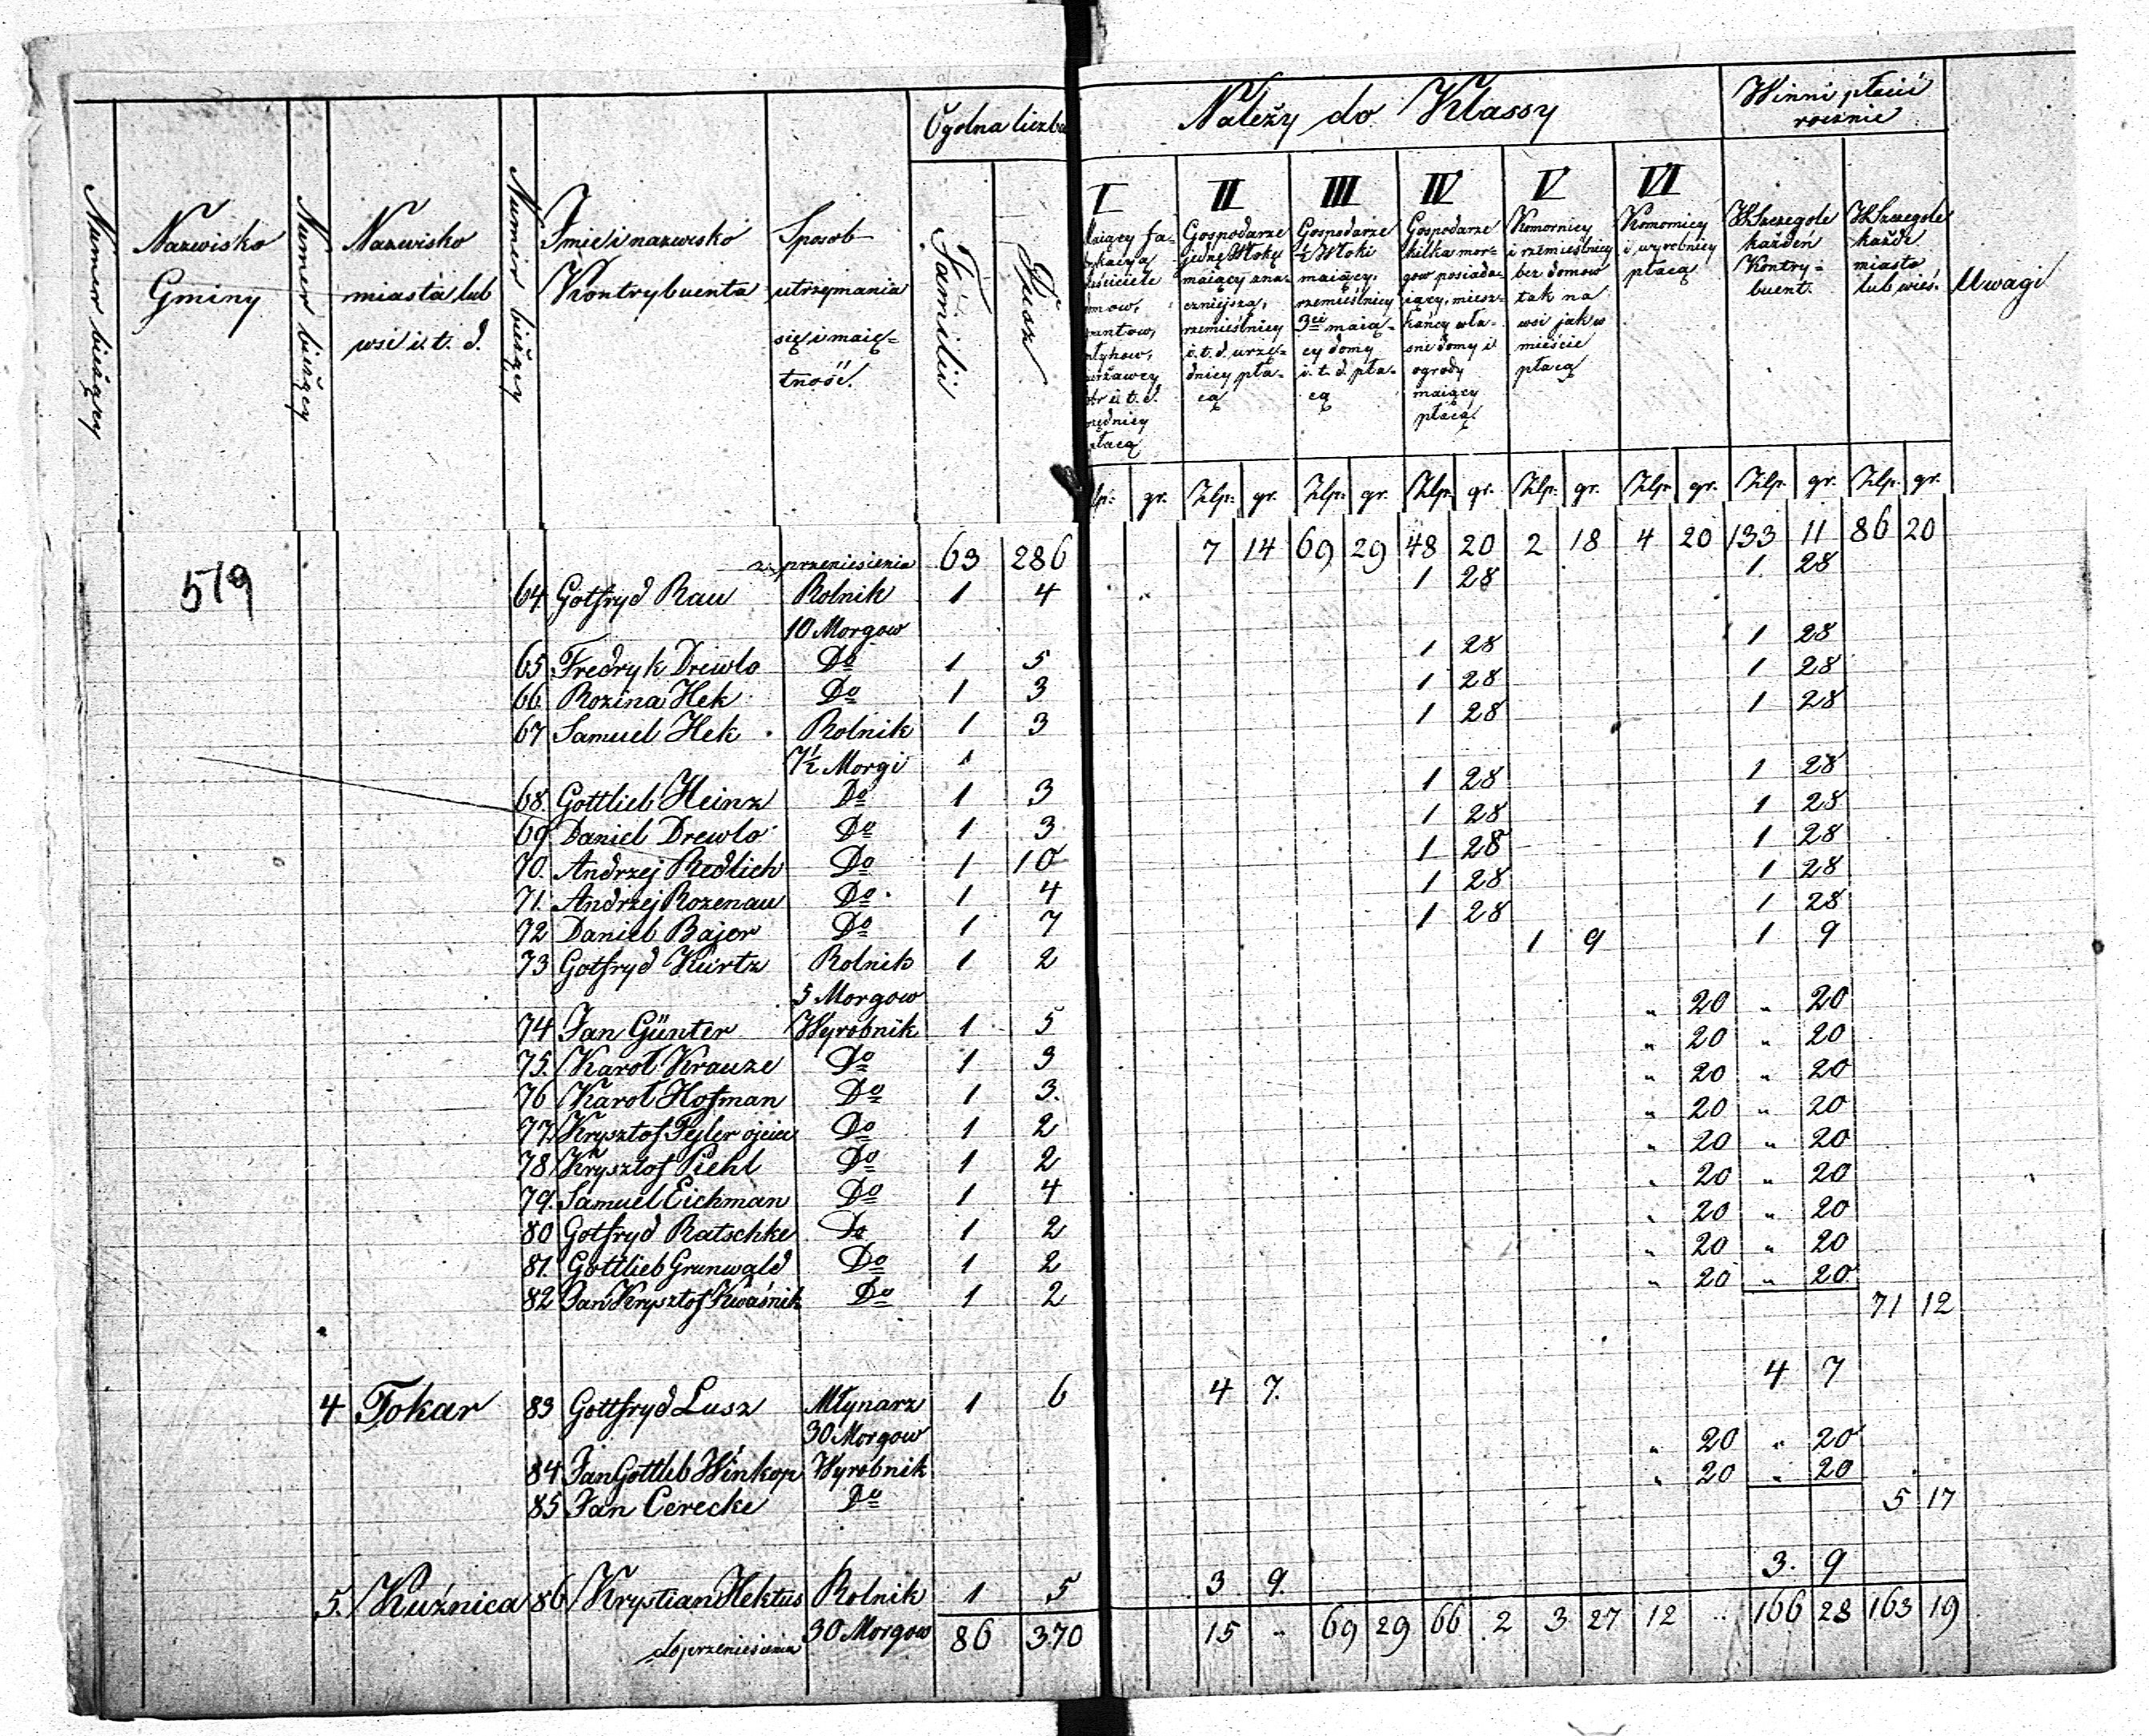 Numer bieżący
Nazwisko Gminy
Numer bieżący
Nazwisko miasta lub wsi i t. d.
Numer bieżący
Imie i nazwisko Kontrybuenta
Sposob utrzymania się i maiętność.
Ogolna liczba
Familii
Dusz
Należy do Klassy
I
II Gospodarze jedne Włokę maiący znaczniejszą, rzemieślnicy i. t. d. urzędnicy płacą
III Gospodarze ½ Włoki maiący, rzemieślnicy 3ci maiący domy i. t. d. płacą
IV Gospodarze kilka morgow posiadaiący, mieszkańcy własne domy i ogrody maiący płacą
V Komornicy i rzemieślnicy bez domow tak na wsi jak w mieście płacą
VI Komornicy i wyrobnicy płacą
Winni płacić rocznie
W Szczegole każden Kontrybuent.
W Szczegole każde miasto lub wieś.
Uwagi
gr. Zlp. gr. Zlp. gr. Zlp. gr. Zlp. gr. Zlp. gr. Zlp. gr. Zlp. gr.
z przeniesienia 63 286 7 14 69 29 48 20 2 18 4 20 133 11 86 20
519
64 Gotfryd Rau Rolnik 1 4 1 28 1 28
10 Morgow
65 Fredryk Drewlo Do 1 5 1 28 1 28
66 Rozina Hek Do 1 3 1 28 1 28
67 Samuel Hek Rolnik 1 3 1 28 1 28
7½ Morgi
68. Gottlieb Heinz Do 1 3 1 28 1 28
69 Daniel Drewlo Do 1 3 1 28 1 28
70. Andrzej Redlich Do 1 10 1 28 1 28
71. Andrzej Rozenau Do 1 4 1 28 1 28
72 Daniel Bajer Do 1 7 1 28 1 28
73 Gotfryd Kurtz Rolnik 1 2 1 9 1 9
5 Morgow
74 Jan Günter Wyrobnik 1 5 " 20 " 20
75. Karol Krauze Do 1 3 " 20 " 20
76 Karol Hofman Do 1 3. " 20 " 20
77. Krysztof Fejler ojciec Do 1 2 " 20 " 20
78 Krysztof Piehl Do 1 2 " 20 " 20
79. Samuel Eichman Do 1 4 " 20 " 20
80 Gotfryd Ratschke Do 1 2 " 20 " 20
81. Gottlieb Grunwald Do 1 2 " 20 " 20
82 Jan Krysztof Kwaśnik Do 1 2 " 20 " 20
71 12
4 Tokar 83 Gottfryd Lusz Młynarz 1 6 4 7. 4 7
30 Morgow
84 Jan Gottlib Winkop Wyrobnik " 20 " 20
85 Jan Cerecke Do " 20 " 20
5 17
5. Kuźnica 86 Krystian Hektus Rolnik 1 5 3 9 3. 9
30 Morgow
do przeniesienia 86 370 15 " 69 29 66 2 3 27 12 " 166 28 163 19